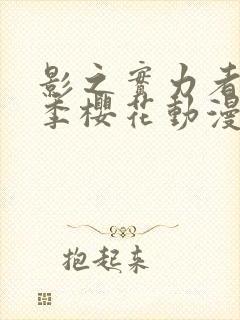 影之實力者
季櫻花動漫
抱起来